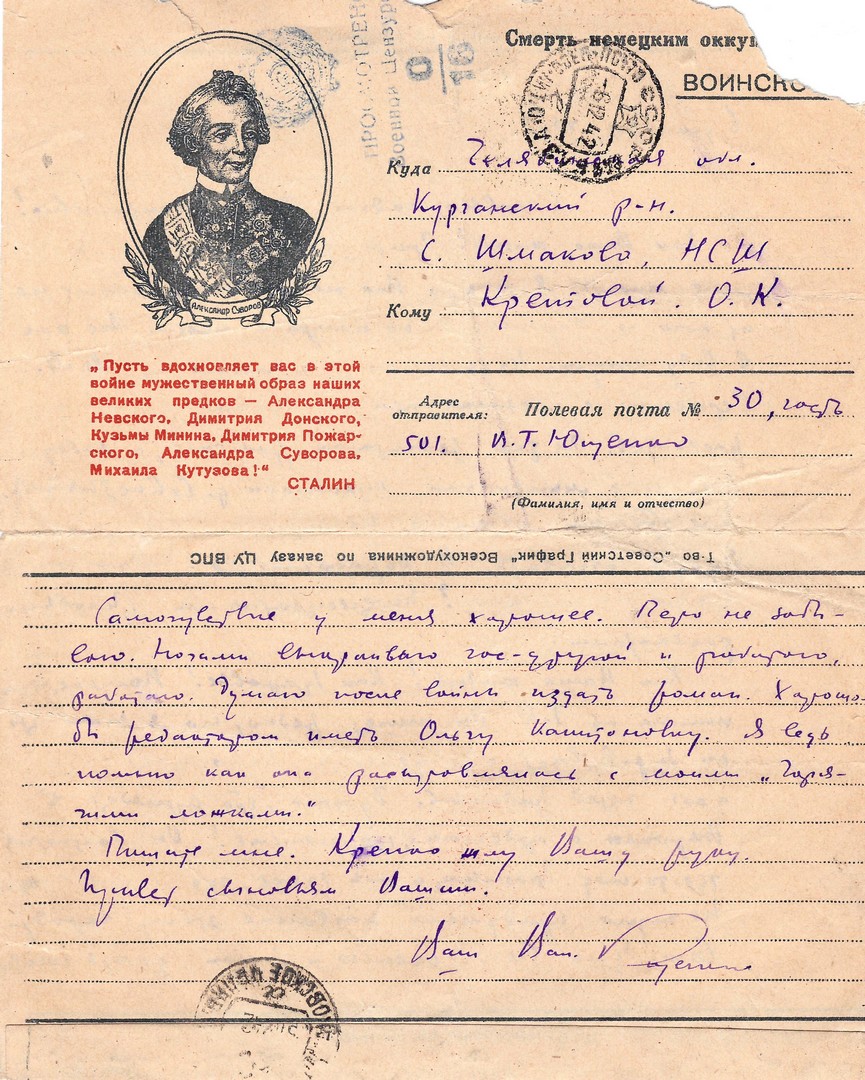 Смерть немецким оккуп
ВОИНСКО
ПРОСМОТРЕНО
Военной Цензурой
0
16
СССР
-6 12 42
АЛЕКСАНДР СУВОРОВ
Куда Челябинская обл.
Курганский р-н.
с. Шмаково, НСШ
Кому Кретовой. О. К.
„Пусть вдохновляет вас в этой
войне мужественный образ наших
великих предков — Александра
Невского, Димитрия Донского,
Кузьмы Минина, Димитрия Пожар-
ского, Александра Суворова,
Михаила Кутузова!“
СТАЛИН
Адрес отправителя: Полевая почта № 30, часть
501. В. Т. Ющенко
(Фамилия, имя и отчество)
Т-во „Советский График“ Всекохудожника по заказу ЦУ ВПС
Самочувствие у меня хорошее. Перо не забы-
ваю. Ночами и работаю,
работаю. Думаю после войны издать роман. Хорошо
бы редактором иметь Ольгу Капитоновну. Я ведь
помню как она расправлялась с моими „Горя-
чими ложками.“
Пишите мне. Крепко жму Вашу руку.
Привет сыновьям Вашим.
Ваш Вал. Ющенко